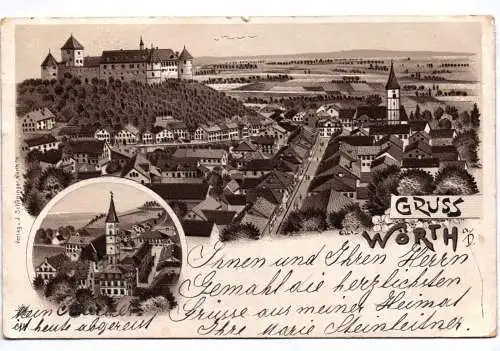 GRUSS
aus
WÖRTH a/D.
Ihnen und Ihren Herrn
Gemahl die herzlichsten
Grüsse aus meiner Heimat
Ihre Marie Steinleitner.
Mein
ist heute abgereist
Verlag v. J.